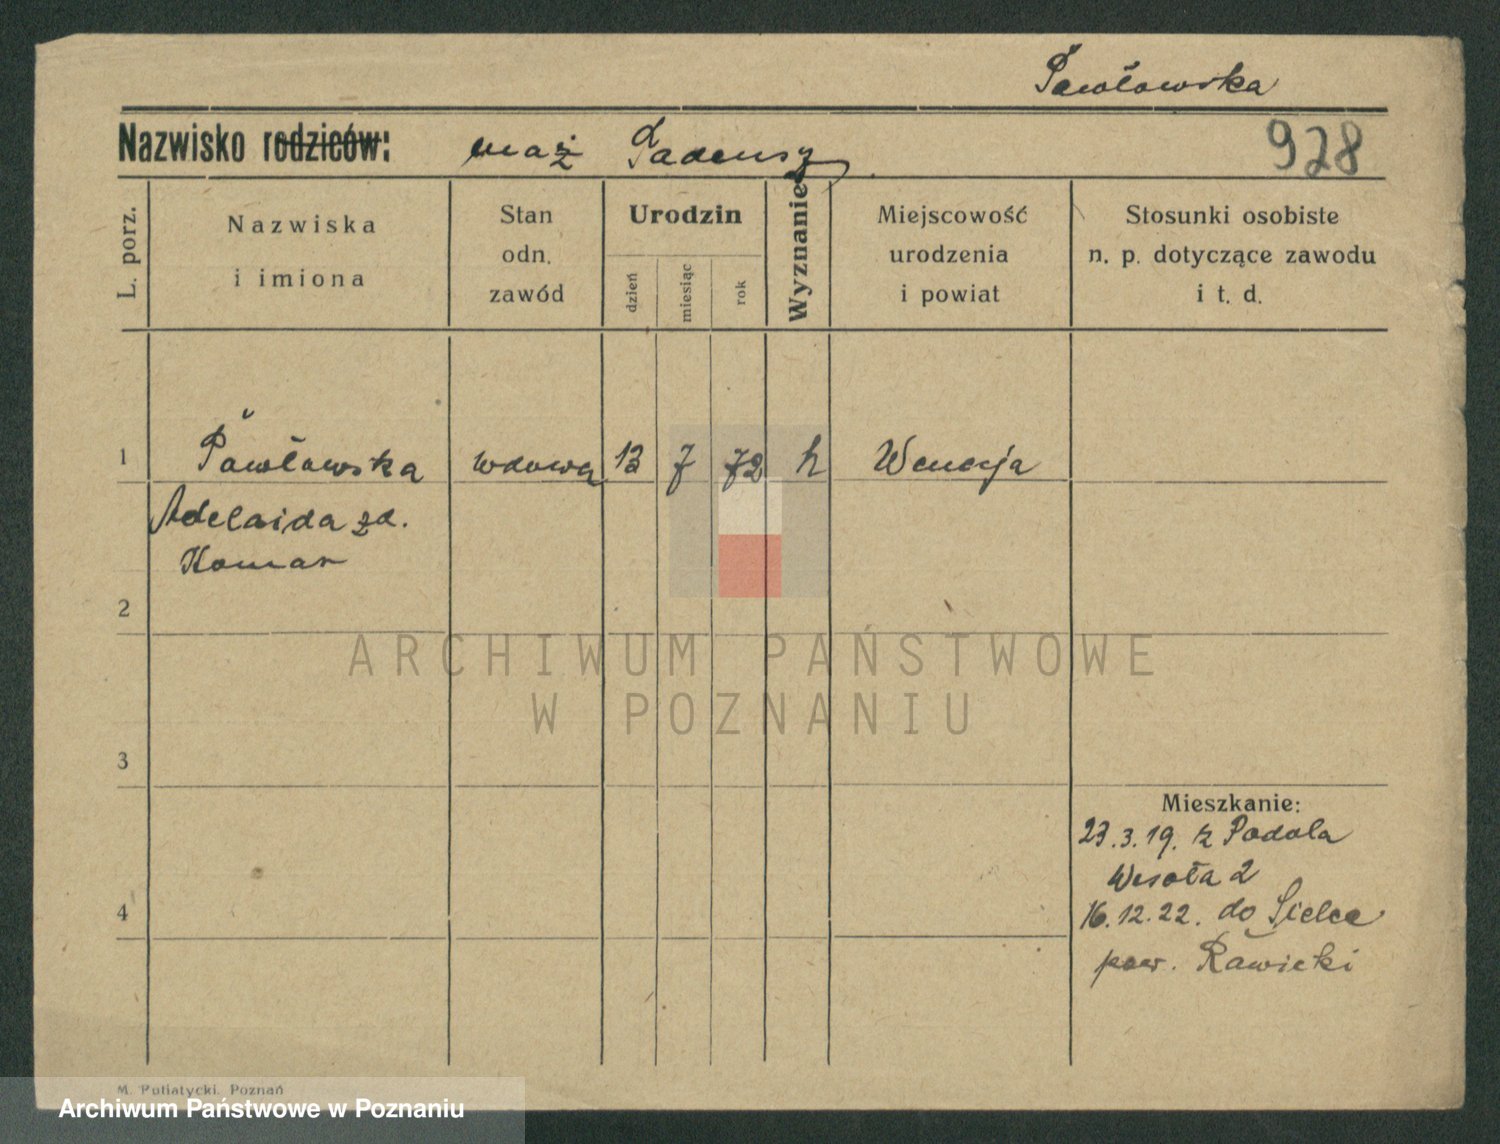 Pawłowska
Nazwisko rodziców: mąż Tadeusz 928
L. porz.
Nazwiska
i imiona
Stan
odn.
zawód
Urodzin
dzień
miesiąc
rok
Wyznanie
Miejscowość
urodzenia
i powiat
Stosunki osobiste
n. p. dotyczące zawodu
i t. d.
1 Pawłowska wdowa 13 7 72 k Wenecja
Adelaida zd.
Komar
2
ARCHIWUM PAŃSTWOWE
W POZNANIU
3
Mieszkanie:
23.3.19. z Podola
Wesoła 2
4 16.12.22. do Sielce
pow. Rawicki
M. Putiatycki, Poznań
Archiwum Państwowe w Poznaniu